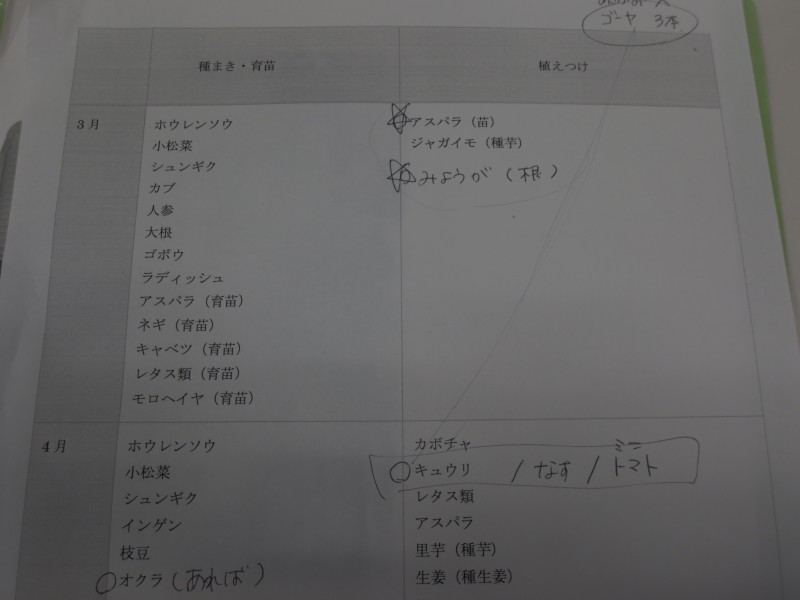 ゴーヤ 3本
種まき・育苗 植えつけ
3月 ホウレンソウ アスパラ（苗）
小松菜 ジャガイモ（種芋）
シュンギク みょうが（根）
カブ
人参
大根
ゴボウ
ラディッシュ
アスパラ（育苗）
ネギ（育苗）
キャベツ（育苗）
レタス類（育苗）
モロヘイヤ（育苗）
4月 ホウレンソウ カボチャ
小松菜 キュウリ / なす / ミニトマト
シュンギク レタス類
インゲン アスパラ
枝豆 里芋（種芋）
オクラ（あれば） 生姜（種生姜）